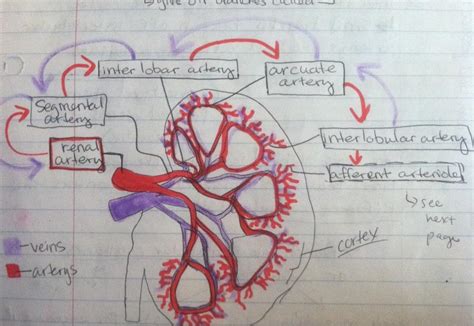 ↳ give off branches called
interlobar artery
arcuate
artery
Segmental
artery
renal
artery
interlobular artery
afferent arteriole
↳ see
next
page
cortex
-veins
-arterys